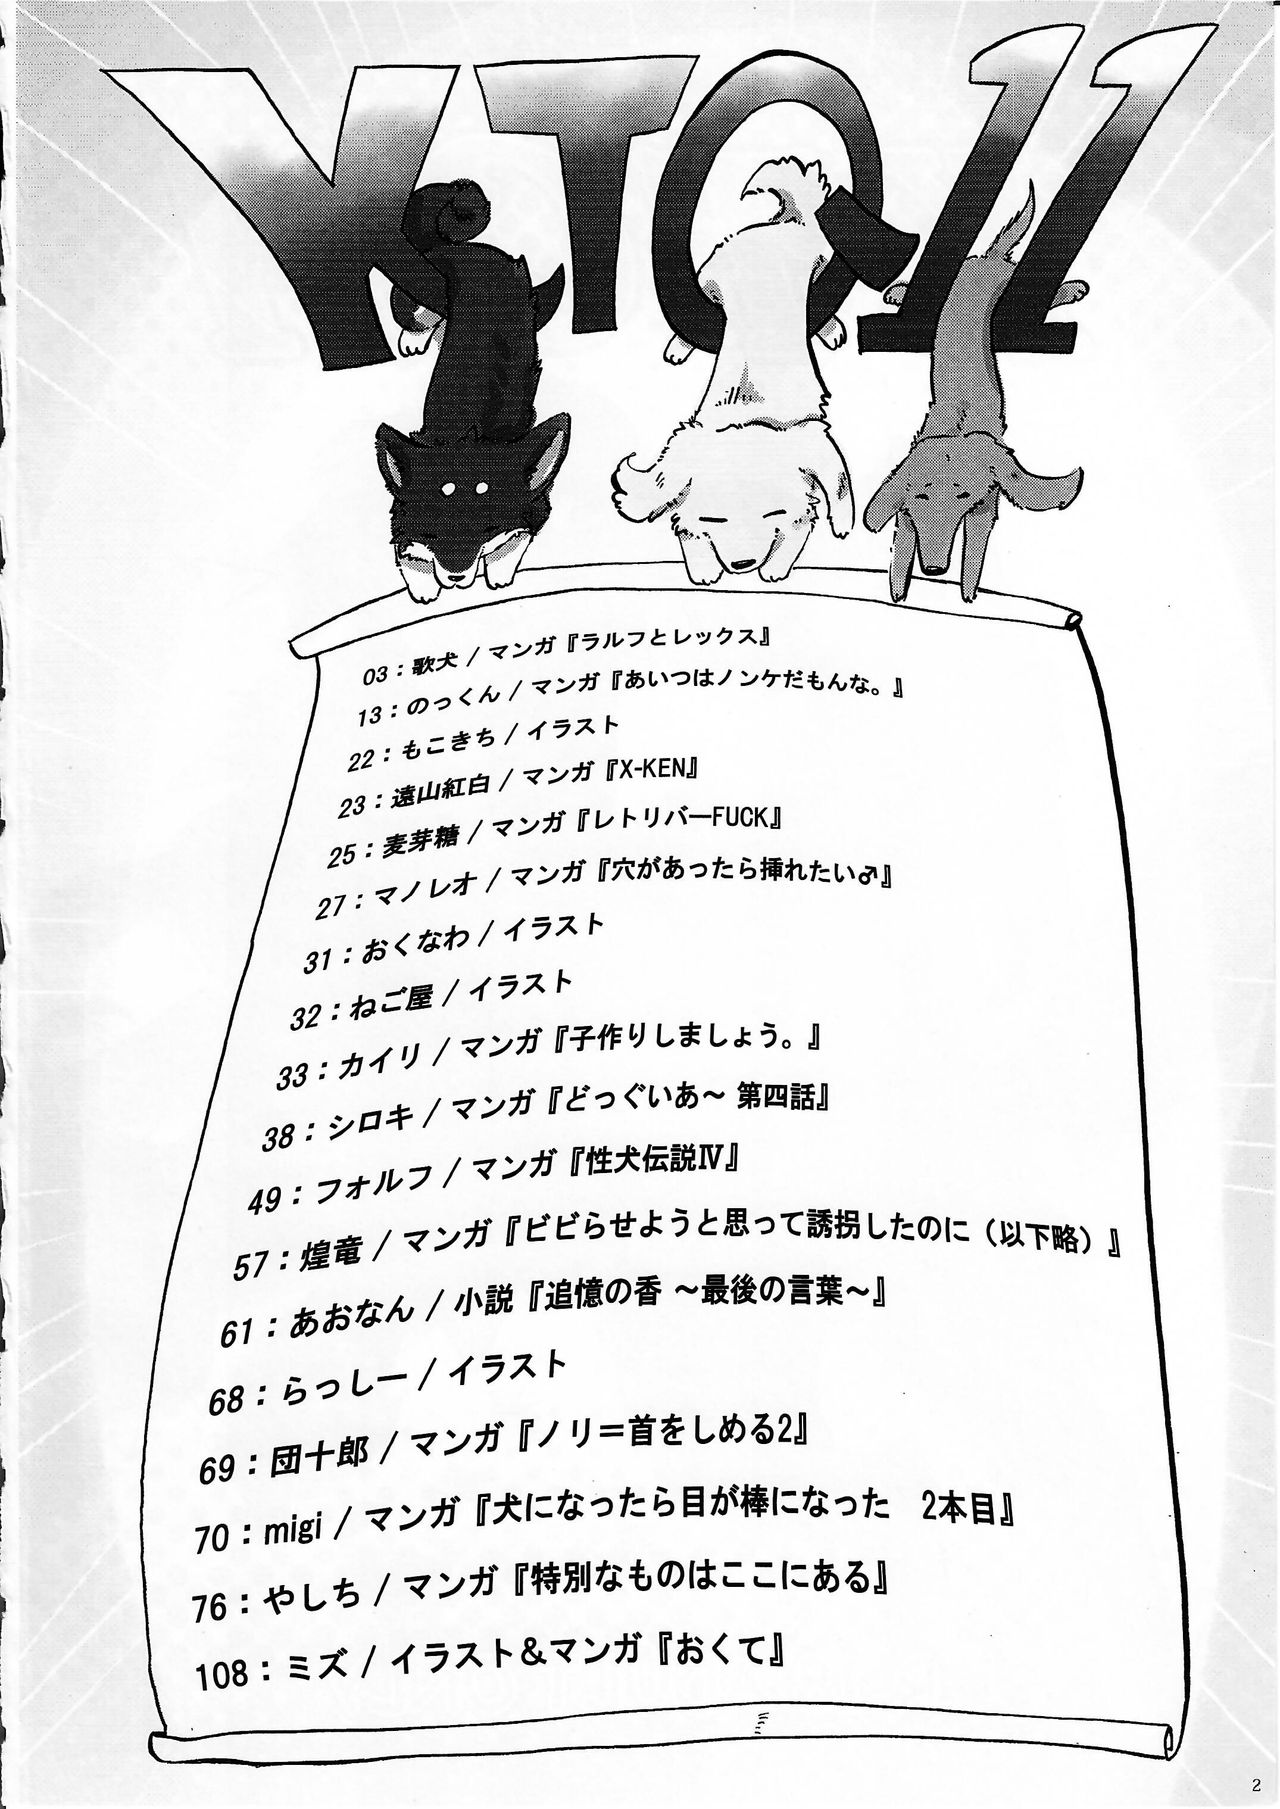 YTQ11
03：歌犬 / マンガ『ラルフとレックス』
13：のっくん / マンガ『あいつはノンケだもんな。』
22：もこきち / イラスト
23：遠山紅白 / マンガ『X-KEN』
25：麦芽糖 / マンガ『レトリバーFUCK』
27：マノレオ / マンガ『穴があったら挿れたい♂』
31：おくなわ / イラスト
32：ねご屋 / イラスト
33：カイリ / マンガ『子作りしましょう。』
38：シロキ / マンガ『どっぐいあ～ 第四話』
49：フォルフ / マンガ『性犬伝説Ⅳ』
57：煌竜 / マンガ『ビビらせようと思って誘拐したのに（以下略）』
61：あおなん / 小説『追憶の香 ～最後の言葉～』
68：らっしー / イラスト
69：団十郎 / マンガ『ノリ＝首をしめる2』
70：migi / マンガ『犬になったら目が棒になった　2本目』
76：やしち / マンガ『特別なものはここにある』
108：ミズ / イラスト＆マンガ『おくて』
2